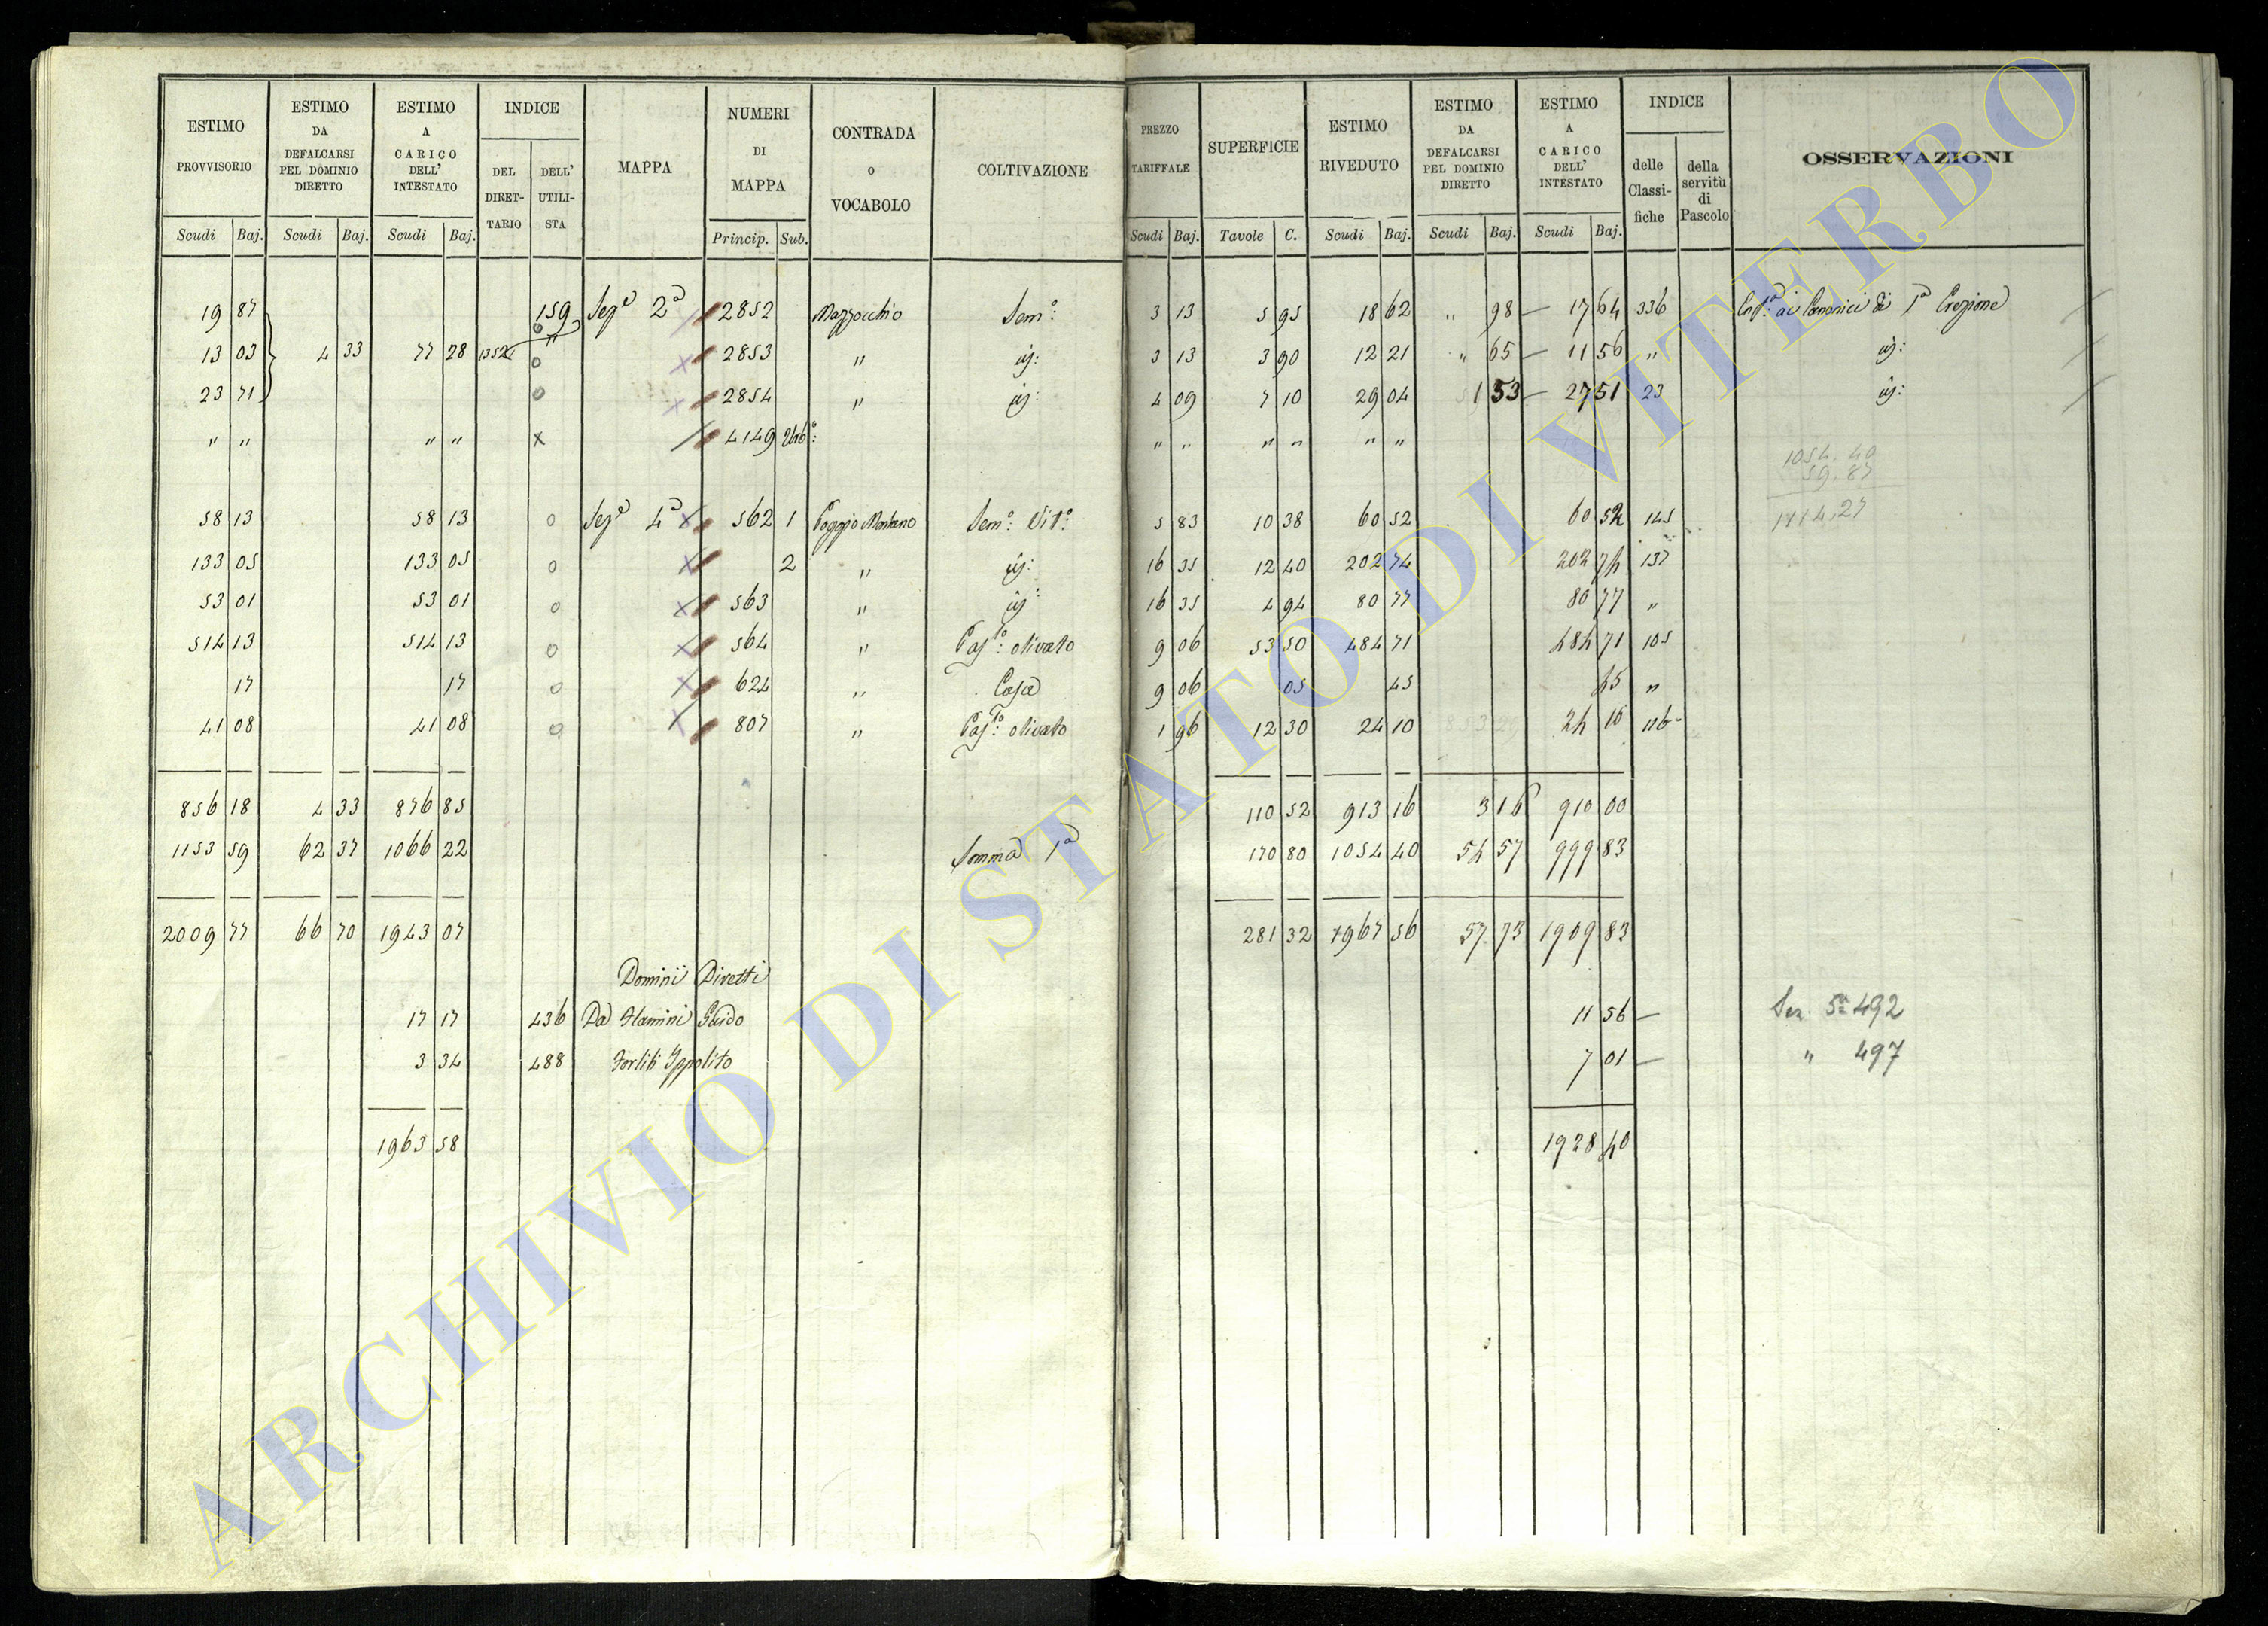 ESTIMO PROVVISORIO | ESTIMO DA DEFALCARSI PEL DOMINIO DIRETTO | ESTIMO A CARICO DELL' INTESTATO | INDICE | MAPPA | NUMERI DI MAPPA | CONTRADA o VOCABOLO | COLTIVAZIONE | PREZZO TARIFFALE | SUPERFICIE | ESTIMO RIVEDUTO | ESTIMO DA DEFALCARSI PEL DOMINIO DIRETTO | ESTIMO A CARICO DELL' INTESTATO | INDICE | OSSERVAZIONI
DEL DIRETTARIO | DELL' UTILISTA | delle Classifiche | della servitù di Pascolo
Scudi | Baj. | Scudi | Baj. | Scudi | Baj. | Princip. | Sub. | Scudi | Baj. | Tavole | C. | Scudi | Baj. | Scudi | Baj. | Scudi | Baj.
19 87 | 159 | Sez.e 2a | 2852 | Mazzocchio | Sem.o: | 3 13 | 5 95 | 18 62 | " 98 — | 17 64 | 336 | ai Canonici di 1a Erezione
13 03 | 4 33 | 77 28 | 1352 | o | 2853 | " | id: | 3 13 | 3 90 | 12 21 | " 65 — | 11 56 | " | id:
23 71 | o | 2854 | " | id: | 4 09 | 7 10 | 29 04 | 1 53 — | 27 51 | 23 | id:
" " | " " | x | 4149 | Urb.o: | " " | " " | " "
1054.40
59.87
1114.27
58 13 | 58 13 | o | Sez.e 4a | 562 | 1 | Poggio Montano | Sem.o: Vit.o: | 5 83 | 10 38 | 60 52 | 60 52 | 145
133 05 | 133 05 | o | 2 | " | id: | 16 35 | 12 40 | 202 74 | 202 74 | 137
53 01 | 53 01 | o | 563 | " | id: | 16 35 | 4 94 | 80 77 | 80 77 | "
514 13 | 514 13 | o | 564 | " | Pas.to: olivato | 9 06 | 53 50 | 484 71 | 484 71 | 105
17 | 17 | o | 624 | " | Casa | 9 06 | 05 | 45 | 45 | "
41 08 | 41 08 | o | 807 | " | Pas.to: olivato | 1 96 | 12 30 | 24 10 | 24 10 | 116
856 18 | 4 33 | 876 85 | 110 52 | 913 16 | 3 16 | 910 00
1153 59 | 62 37 | 1066 22 | Somma 1a | 170 80 | 1054 40 | 54 57 | 999 83
2009 77 | 66 70 | 1943 07 | 281 32 | 1967 56 | 57 73 | 1909 83
Dominii Diretti
17 17 | 436 | Da Flamini Guido | 11 56 — | Sez. 5a 492
3 34 | 488 | Forliti Ippolito | 7 01 — | " 497
1963 58 | 1928 40
ARCHIVIO DI STATO DI VITERBO